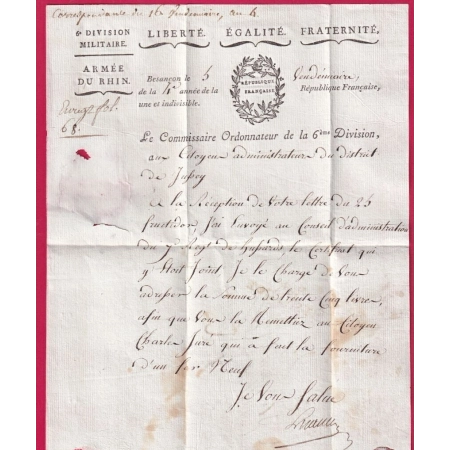 Correspondance du 16 Vendemiaire, an 4.
6e DIVISION MILITAIRE.
LIBERTÉ. ÉGALITÉ. FRATERNITÉ.
ARMÉE DU RHIN.
Besançon le 5 Vendémiaire,
de la 4e année de la République Française,
une et indivisible.
RÉPUBLIQUE FRANÇAISE
fol.
68.
Le Commissaire Ordonnateur de la 6ème Division,
aux Citoyens administrateurs du district
de Jussey
à la Réception de Votre lettre du 25
fructidor J'ai Envoyé au Conseil d'administration
du 7e Reg. de hussards, le Certificat qui
y Etoit Joint, Je le Charge de Vous
adresser la Somme de trente Cinq livres,
afin que Vous la Remettiez au Citoyen
Charles Juré qui a fait la fourniture
d'un fer Neuf
Je Vous Salue